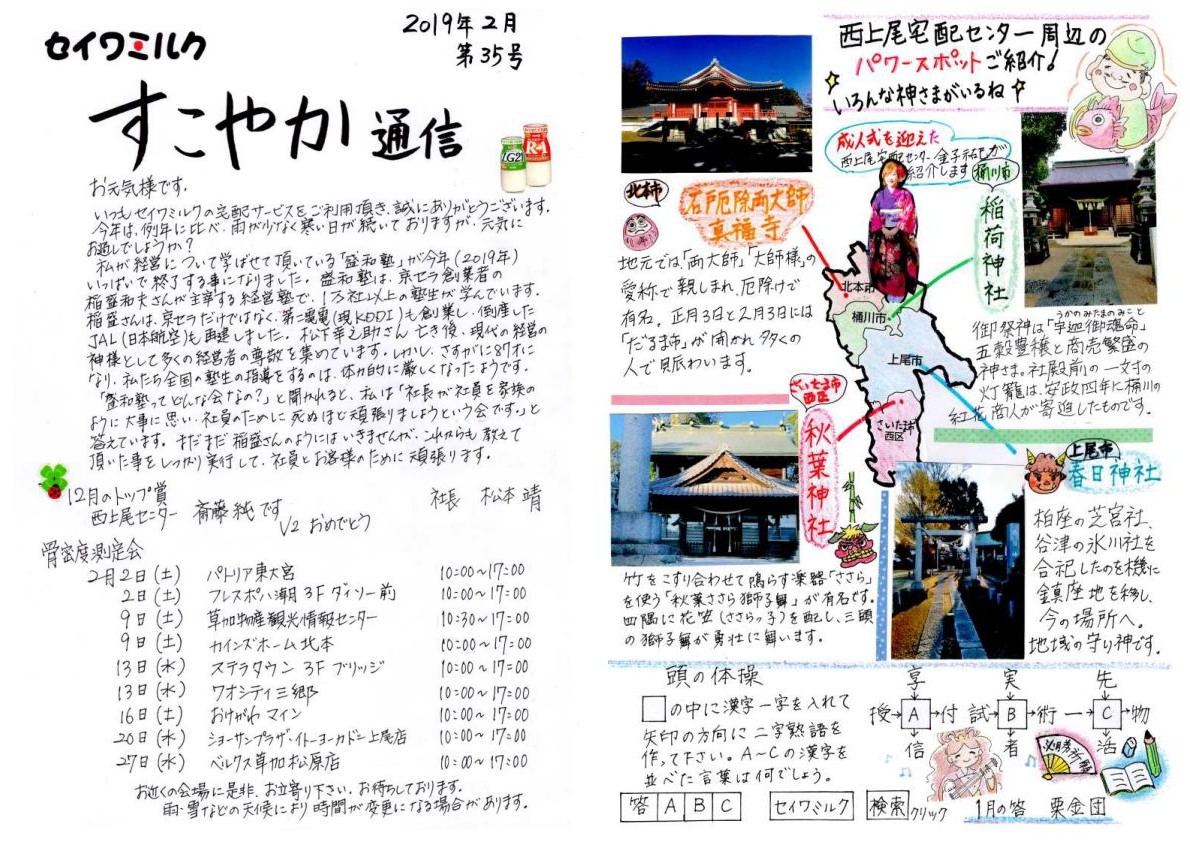 セイワミルク
2019年2月
第35号
すこやか通信
LG21
R-1
お元気様です。
いつもセイワミルクの宅配サービスをご利用頂き、誠にありがとうございます。
今年は、例年に比べ、雨が少なく寒い日が続いておりますが、元気に
お過しでしょうか?
私が経営について学ばせて頂いている「盛和塾」が今年(2019年)
いっぱいで終了する事になりました。盛和塾は、京セラ創業者の
稲盛和夫さんが主宰する経営塾で、1万社以上の塾生が学んでいます。
稲盛さんは、京セラだけではなく、第二電電(現KDDI)も創業し、倒産した
JAL(日本航空)も再建しました。松下幸之助さん亡き後、現代の経営の
神様として多くの経営者の尊敬を集めています。しかし、さすがに87才に
なり、私たち全国の塾生の指導をするのは、体力的に厳しくなったようです。
「盛和塾ってどんな会なの?」と聞かれると、私は「社長が社員を家族の
ように大事に思い、社員のために死ぬほど頑張りましょうという会です。」と
答えています。まだまだ稲盛さんのようにはいきませんが、これからも教えて
頂いた事をしっかり実行して、社員とお客様のために頑張ります。
社長 松本 靖
12月のトップ賞
西上尾センター 斎藤純です
V2 おめでとう
骨密度測定会
2月2日(土) パトリア東大宮 10:00~17:00
2日(土) フレスポ八潮 3F ダイソー前 10:00~17:00
9日(土) 草加物産観光情報センター 10:30~17:00
9日(土) カインズホーム北本 10:00~17:00
13日(水) ステラタウン 3F ブリッジ 10:00~17:00
13日(水) ワオシティ三郷 10:00~17:00
16日(土) おけがわマイン 10:00~17:00
20日(水) ショーサンプラザ・イトーヨーカドー上尾店 10:00~17:00
27日(水) ベルクス草加松原店 10:00~17:00
お近くの会場に是非、お立寄り下さい。お待ちしております。
雨・雪などの天候により時間が変更になる場合があります。
西上尾宅配センター周辺の
パワースポットご紹介!
いろんな神さまがいるね
成人式を迎えた
西上尾宅配センター金子和も
紹介します
北本市
石戸厄除両大師
真福寺
地元では、「両大師」「大師様」の
愛称で親しまれ、厄除けで
有名。正月3日と2月3日には
「だるま市」が開かれ多くの
人で賑わいます。
桶川市
稲荷神社
うかのみたまのみこと
御祭神は「宇迦御魂命」
五穀豊穣と商売繁盛の
神さま。社殿前の一丈の
灯籠は、安政四年に桶川の
紅花商人が寄進したものです。
北本市
桶川市
上尾市
さいたま市
西区
さいたま市
西区
秋葉神社
竹をこすり合わせて鳴らす楽器「ささら」
を使う「秋葉ささら獅子舞」が有名です。
四隅に花笠(ささらっ子)を配し、三頭
の獅子舞が勇壮に舞います。
上尾市
春日神社
柏座の芝宮社、
谷津の氷川社を
合祀したのを機に
鎮座地を移し、
今の場所へ。
地域の守り神です。
頭の体操
□の中に漢字一字を入れて
矢印の方向に二字熟語を
作って下さい。A~Cの漢字を
並べた言葉は何でしょう。
享 実 先
授→A→付 試→B→術 一→C→物
信 者 活
答 A B C
セイワミルク 検索 クリック
1月の答 栗金団